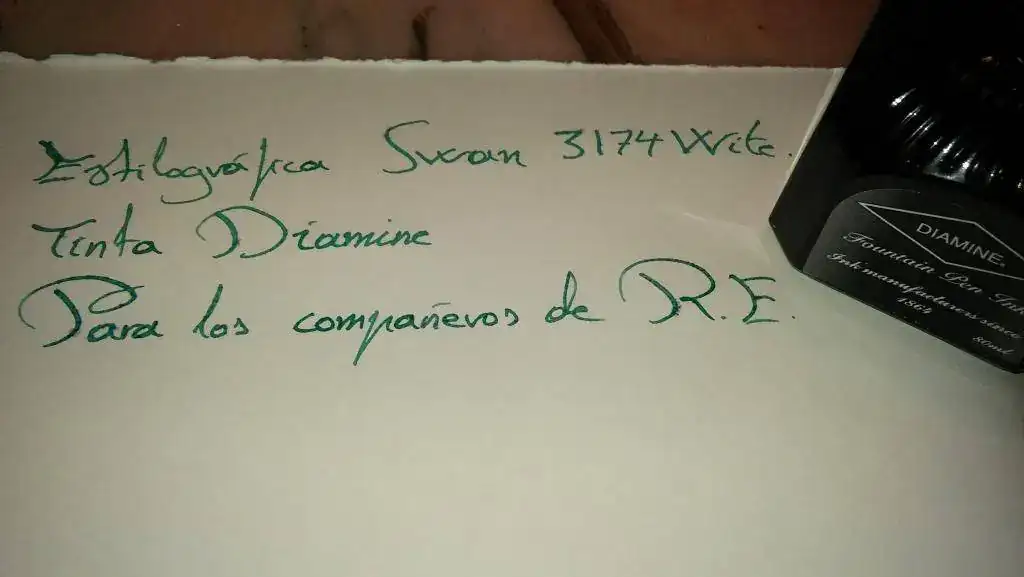 Estilográfica Swan 3174 Write.
Tinta Diamine
Para los compañeros de R.E.
DIAMINE
Fountain Pen Ink
Ink manufacturers since
1864
80ml